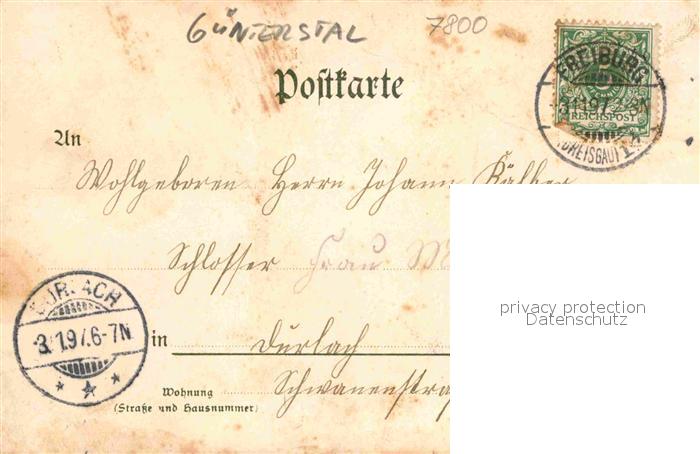 GÜNTERSTAL 7800
Postkarte
FREIBURG
REICHSPOST
(BREISGAU)
An
Wohlgeboren Herrn Johann Kälber
Schlosser Frau
DURLACH
3.1.97.6-7N
in Durlach
Wohnung
(Straße und Hausnummer)
Schwanenstraß
privacy protection
Datenschutz